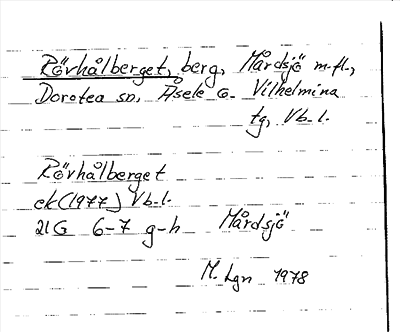 Rövhålberget, berg, Mårdsjö m.fl.,
Dorotea sn, Åsele o. Vilhelmina
tg, Vb.l.
Rövhålberget
ek(1977) Vb.l.
21G 6-7 g-h Mårdsjö
M. Lgn 1978